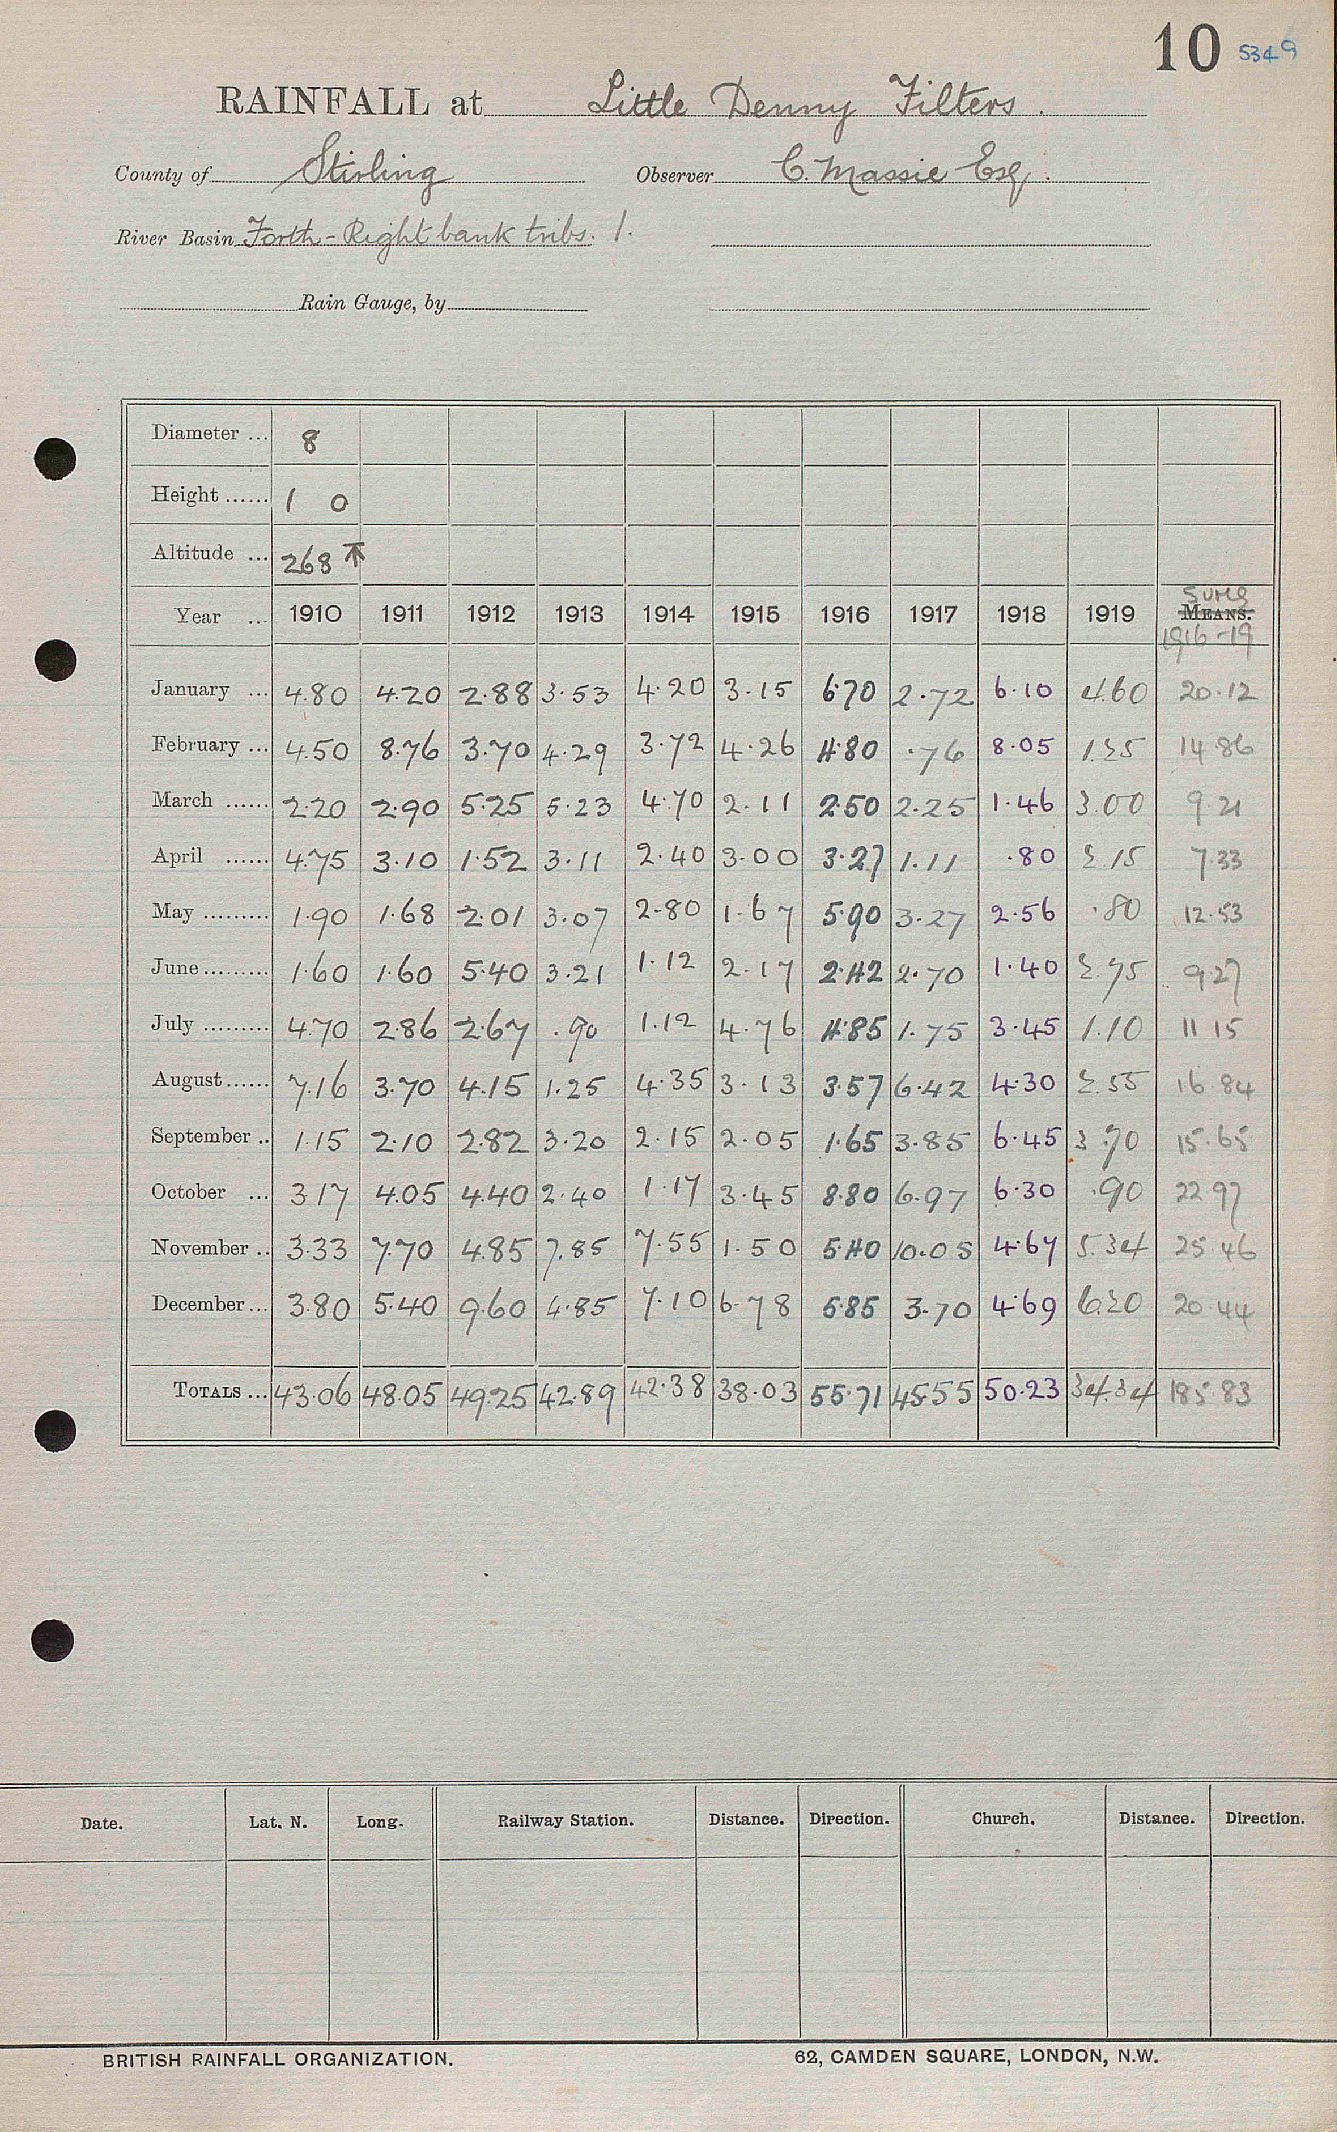 10 5349
RAINFALL at Little Denny Filters.
County of Stirling Observer C. Massie Esq.
River Basin Forth - Right bank tribs. 1.
Rain Gauge, by
Diameter ... 8
Height ...... 1 0
Altitude ... 268 ↑
Sums
Year ... 1910 1911 1912 1913 1914 1915 1916 1917 1918 1919 MEANS.
1916-19
January ... 4.80 4.20 2.88 3.53 4.20 3.15 6.70 2.72 6.10 4.60 20.12
February ... 4.50 8.76 3.70 4.29 3.72 4.26 4.80 .76 8.05 1.25 14.86
March ...... 2.20 2.90 5.25 5.23 4.70 2.11 2.50 2.25 1.46 3.00 9.21
April ...... 4.75 3.10 1.52 3.11 2.40 3.00 3.27 1.11 .80 2.15 7.33
May ......... 1.90 1.68 2.01 3.07 2.80 1.67 5.90 3.27 2.56 .80 12.53
June ......... 1.60 1.60 5.40 3.21 1.12 2.17 2.42 2.70 1.40 2.75 9.27
July ......... 4.70 2.86 2.67 .90 1.12 4.76 4.85 1.75 3.45 1.10 11 15
August ...... 7.16 3.70 4.15 1.25 4.35 3.13 3.57 6.42 4.30 2.55 16 84
September .. 1.15 2.10 2.82 3.20 2.15 2.05 1.65 3.85 6.45 3.70 15.65
October ... 3.17 4.05 4.40 2.40 1.17 3.45 8.80 6.97 6.30 .90 22 97
November .. 3.33 7.70 4.85 7.85 7.55 1.50 5.40 10.05 4.67 5.34 25 46
December ... 3.80 5.40 9.60 4.85 7.10 6.78 5.85 3.70 4.69 6.20 20.44
TOTALS ... 43.06 48.05 49.25 42.89 42.38 38.03 55.71 45.55 50.23 34.34 185 83
Date. Lat. N. Long. Railway Station. Distance. Direction. Church. Distance. Direction.
BRITISH RAINFALL ORGANIZATION. 62, CAMDEN SQUARE, LONDON, N.W.